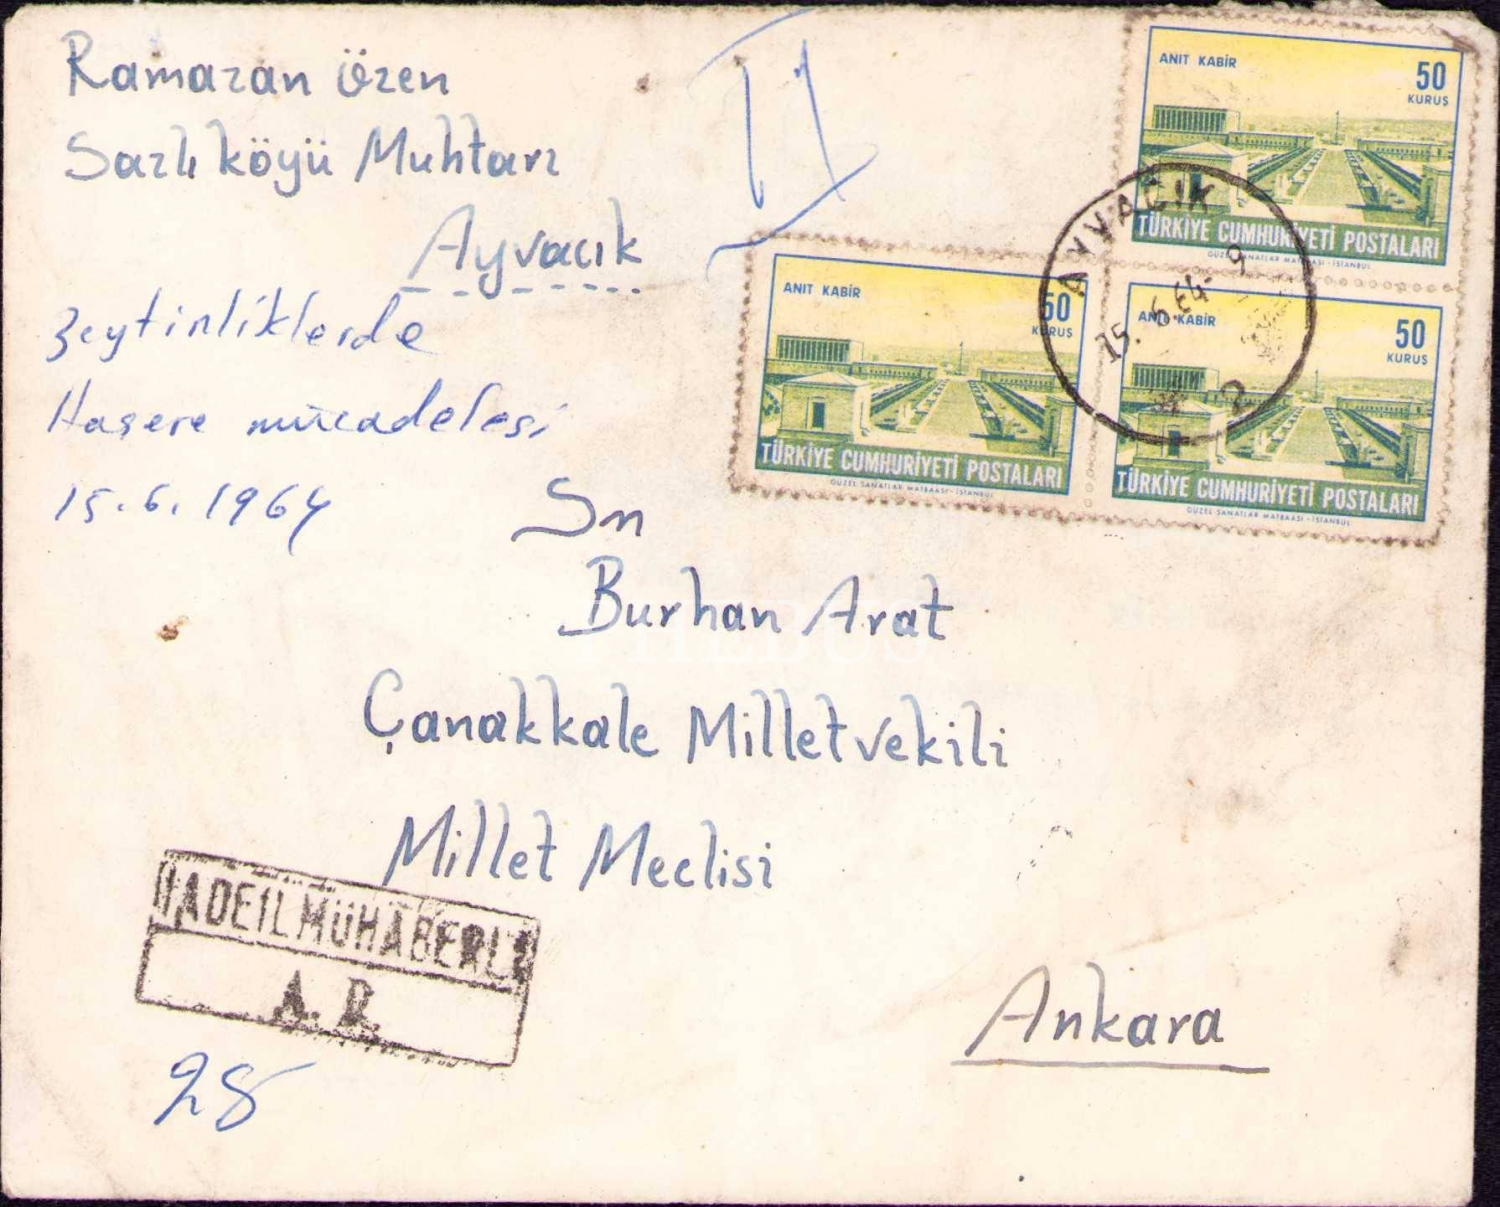 Ramazan Özen
Sazlı köyü Muhtarı
Ayvacık
Zeytinliklerde
Haşere mücadelesi
15.6.1964
ANIT KABİR
50
KURUŞ
TÜRKİYE CUMHURİYETİ POSTALARI
GÜZEL SANATLAR MATBAASI - İSTANBUL
ANIT KABİR
50
KURUŞ
TÜRKİYE CUMHURİYETİ POSTALARI
GÜZEL SANATLAR MATBAASI - İSTANBUL
ANIT KABİR
50
KURUŞ
TÜRKİYE CUMHURİYETİ POSTALARI
GÜZEL SANATLAR MATBAASI - İSTANBUL
AYVACIK
15.6.64- 9
2
Sn
Burhan Arat
Çanakkale Milletvekili
Millet Meclisi
Ankara
İADEİLMÜHABERLİ
A.R.
28
PHEBUS